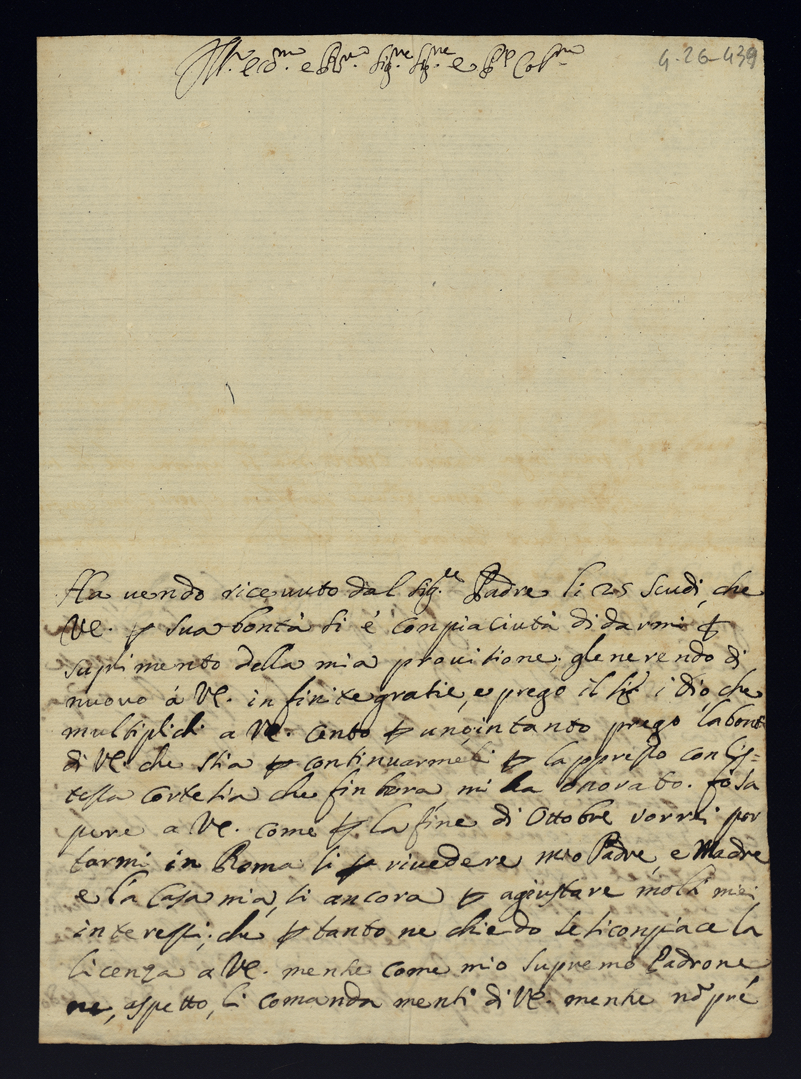 Ill.mo e Rev.mo Sig.re Sig.re e P.ne Col.mo
4-26-439
Havendo ricevuto dal Sig.re Padre li 25 scudi, che
VE. p sua bontà si è conpiaciuta di darmi p
suplimento della mia provitione, gle ne rendo di
nuovo à VE. infinite gratie, e prego il Sig. idio che
multiplichi a VE. cento p uno, intanto prego la bontà
di VE. che stia p continuarmeli p lappresso con lis=
tessa cortesia che fin hora mi ha onorato. fo sa
pere a VE. come p la fine di Ottobre vorrei por
tarmi in Roma si p rivedere mio Padre, e Madre
e la Casa mia, si ancora p agiustare molti miei
interessi; che p tanto ne chiedo se si conpiace la
licenza a VE. mentre come mio supremo Padrone
ne, aspetto, li comandamenti di VE. mentre nõ pre